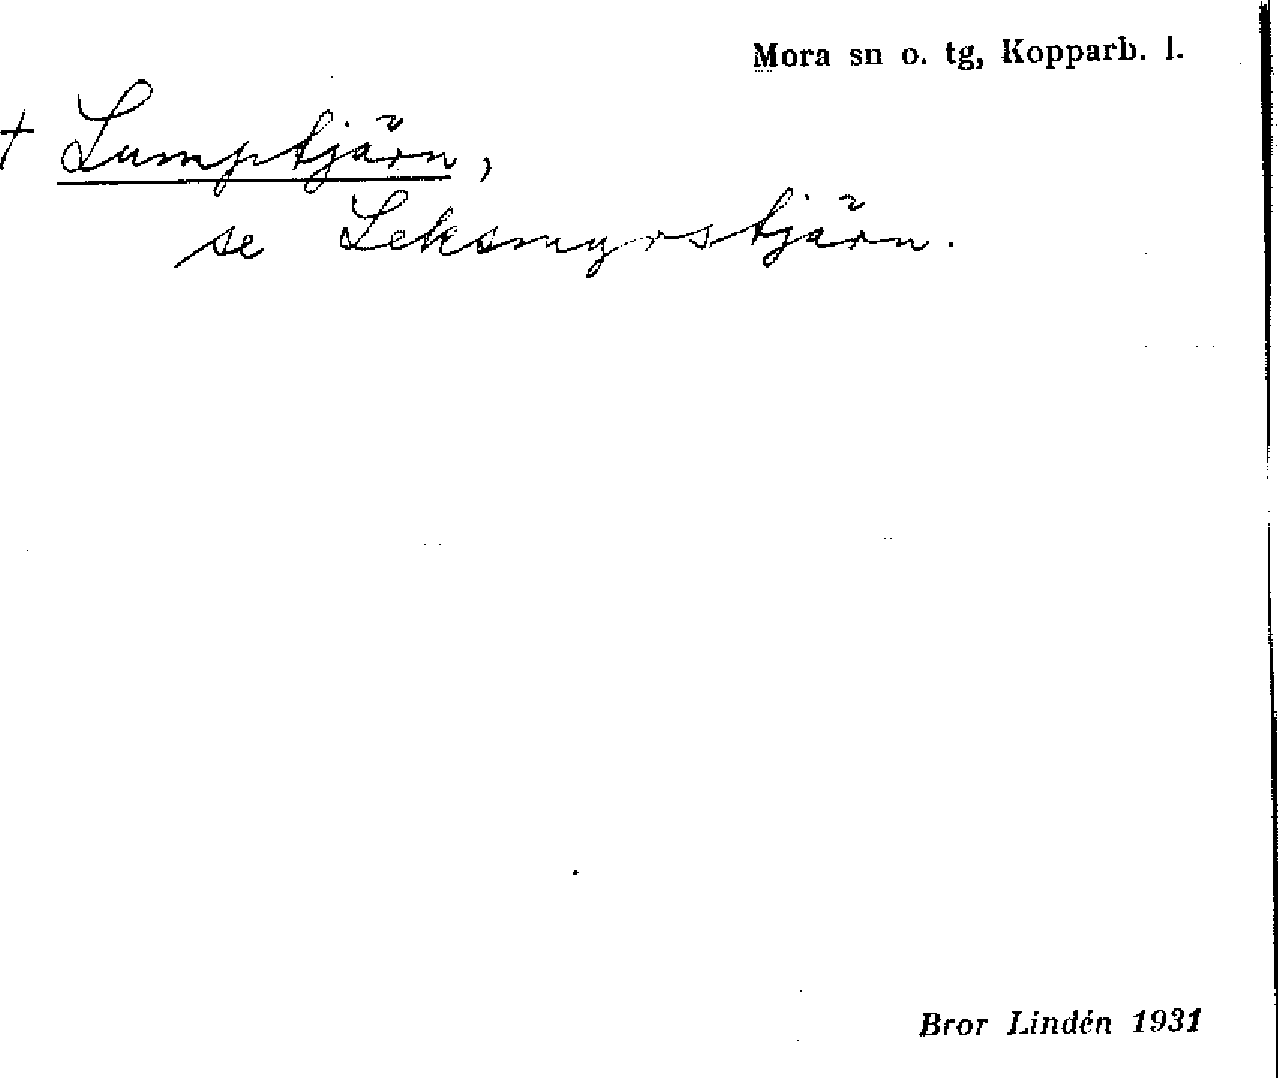 Mora sn o. tg, Kopparb. l.
† Lumptjärn,
se Leksmyrstjärn.
Bror Lindén 1931